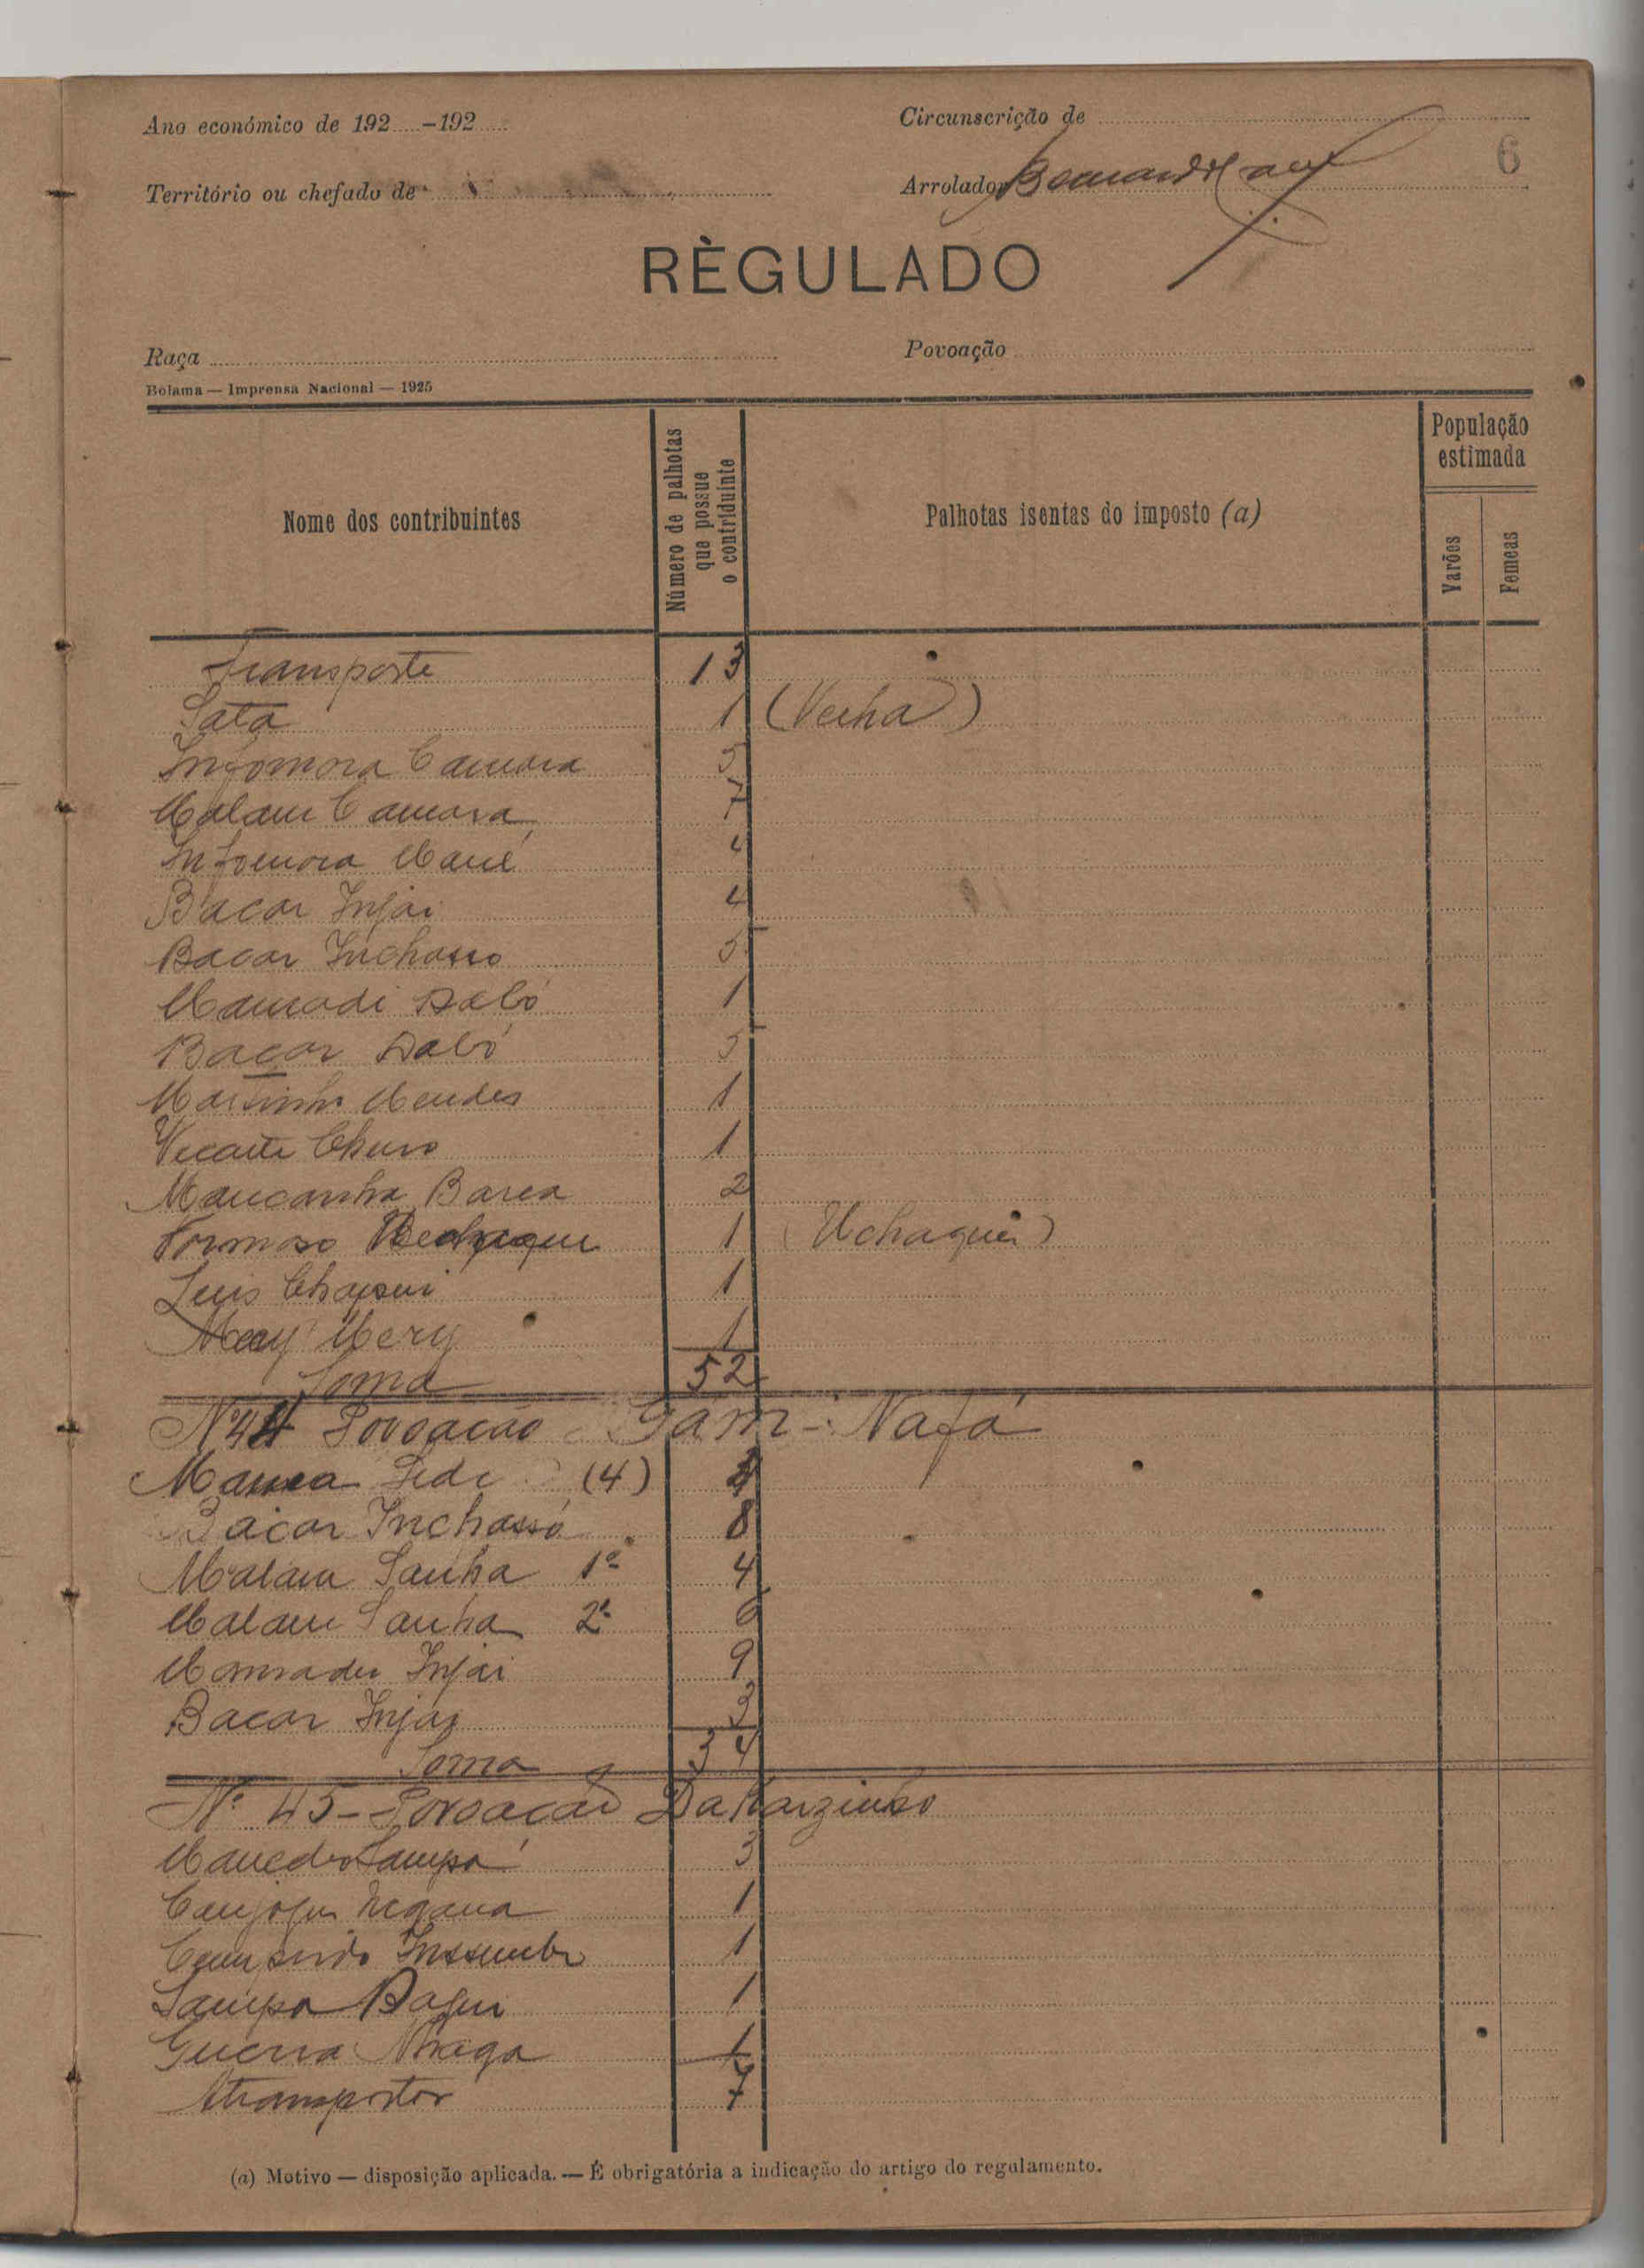 Ano económico de 192 -192
Circunscrição de
6
Território ou chefado de
Arrolador
RÈGULADO
Raça
Povoação
Bolama — Imprensa Nacional — 1925
Nome dos contribuintes
Número de palhotas que possue o contriduinte
Palhotas isentas do imposto (a)
População estimada
Varões
Femeas
Transporte 13
Sata 1 (Velha)
Infomora Camara 5
Malam Camara 7
Infomora Mané 4
Bacar Injai 4
Bacar Inchasso 5
Mamadi Dabó 1
Bacar Dabó 5
Martinho Mendes 1
Vicente 1
Mancanha Barea 2
Formoso 1 (Uchaque)
Luis 1
1
Soma 52
Nº 44 Povoação Gam-Nafá
Mansa Sedi (4) 4
Bacar Inchassó 8
Malam Sanha 1º 4
Malam Sanha 2º 6
Mamadu Injai 9
Bacar Injai 3
Soma 34
Nº 45 - Povoação Dakarzinho
3
1
1
Sampa 1
Guerra 1
A transportar 7
(a) Motivo — disposição aplicada. — É obrigatória a indicação do artigo do regulamento.